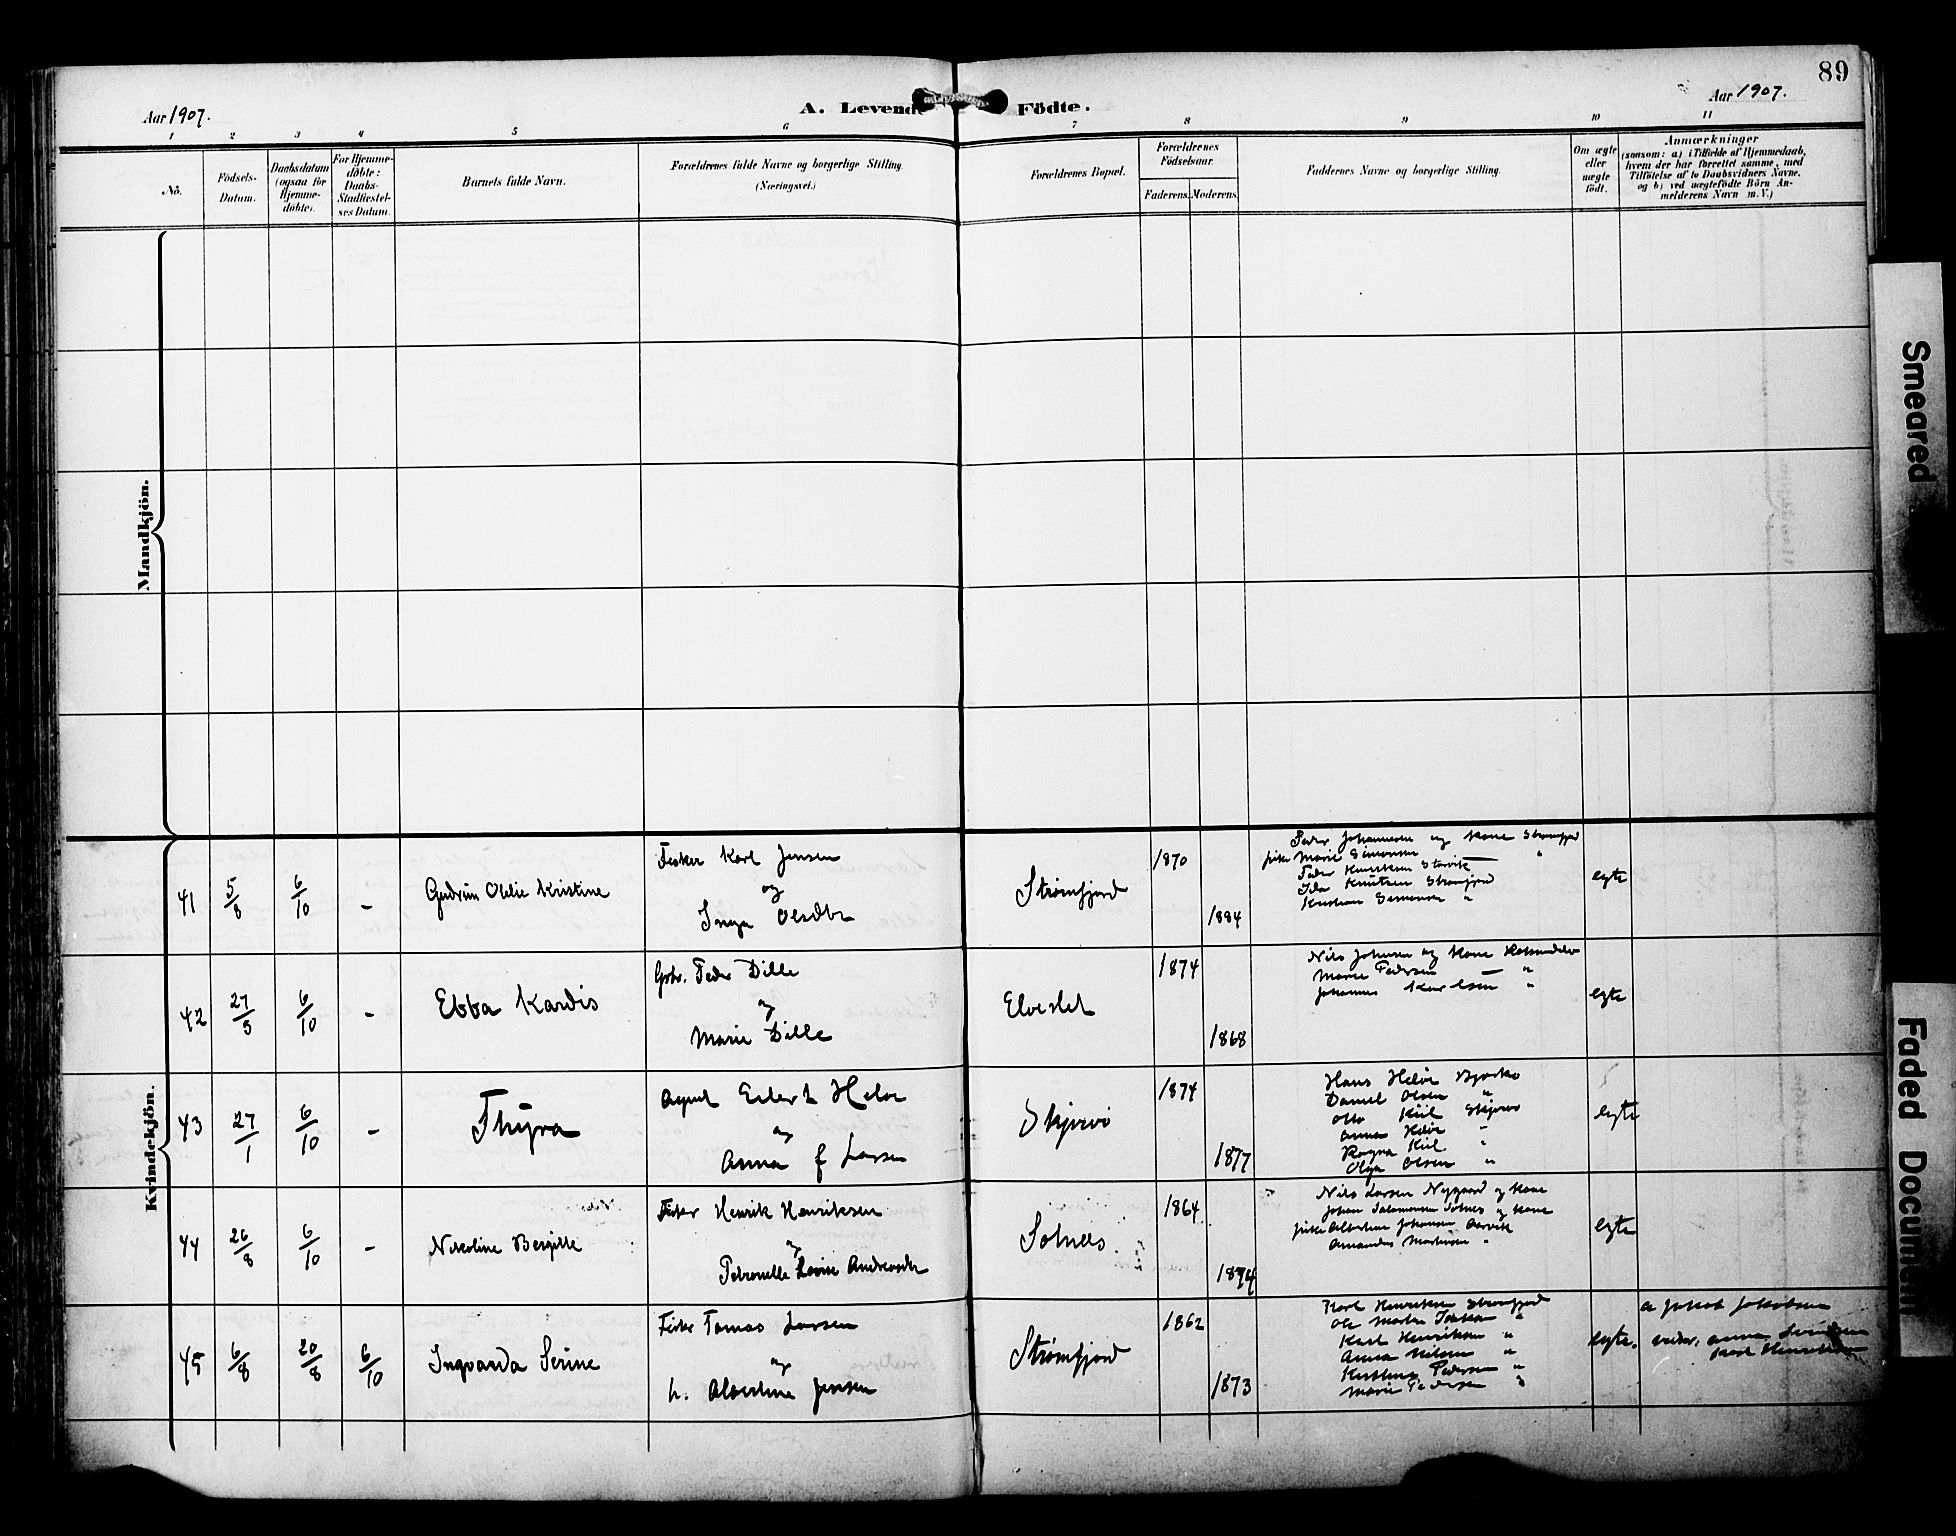 89
Aar 1907.
A. Levende Födte.
Aar 1907.
1 2 3 4 5 6 7 8 9 10 11
No.
Födsels-Datum.
Daabsdatum (ogsaa for Hjemme-döbte).
For Hjemme-döbte: Daabs-Stadfæstel-ses Datum.
Barnets fulde Navn.
Forældrenes fulde Navne og borgerlige Stilling.
(Næringsvei.)
Forældrenes Bopæl.
Forældrenes Födselsaar.
Faderens. Moderens.
Faddernes Navne og borgerlige Stilling.
Om ægte eller uægte födt.
Anmærkninger
(saasom: a) i Tilfælde af Hjemmedaab,
hvem der har forrettet samme, med
Tilföielse af to Daabsvidners Navne,
og b) ved uægtefödte Börn An-
melderens Navn m.V.)
Mandkjön.
Kvindekjön.
41 5/8 6/10 - Gudrun Otelie Kristine
Fisker Karl Jensen
og
Inga Olsdtr
Strømfjord
1870
1884
Peder Johannesen og kone Strømfjord
pike Marie Simonsen "
Peder Henriksen Storvik
Ida Knutsen Strømfjord
Kristian Simonsen "
egte
42 27/5 6/10 - Ebba Kardis
Gbr. Peder Dille
og
Marie Dille
Elveslet
1874
1868
Nils Johnsen og kone
Marie Pedersen "
Johannes Karlsen "
egte
43 27/1 6/10 - Thyra
Agent Eilert Heløe
og
Anna f Larsen
Skjervø
1874
1877
Hans Heløe Bjarkø
Daniel Olsen "
Otto Kiil Skjervø
Anna Heløe "
Ragna Kiil "
Olga Olsen "
egte
44 26/8 6/10 - Nikoline Bergitte
Fisker Henrik Henriksen
og
Petronelle Lovise Andreasdtr
Sotnes
1864
1874
Nils Larsen Nygaard og kone
Johan Salomonsen Sotnes og kone
pike Albertine Johansen
Amandus Martinsen "
egte
45 6/8 20/8 6/10 Ingvarda Serine
Fisker Tomas Larsen
og
h. Albertine Jensen
Strømfjord
1862
1873
Karl Henriksen Strømfjord
Ole Martin "
Karl Henriksen "
Anna Nilsen "
Kristine Pedersen "
Marie Pedersen "
egte.
a Jakob Jakobsen
vidner: Anna
Karl Henriksen
Smeared
Faded Document